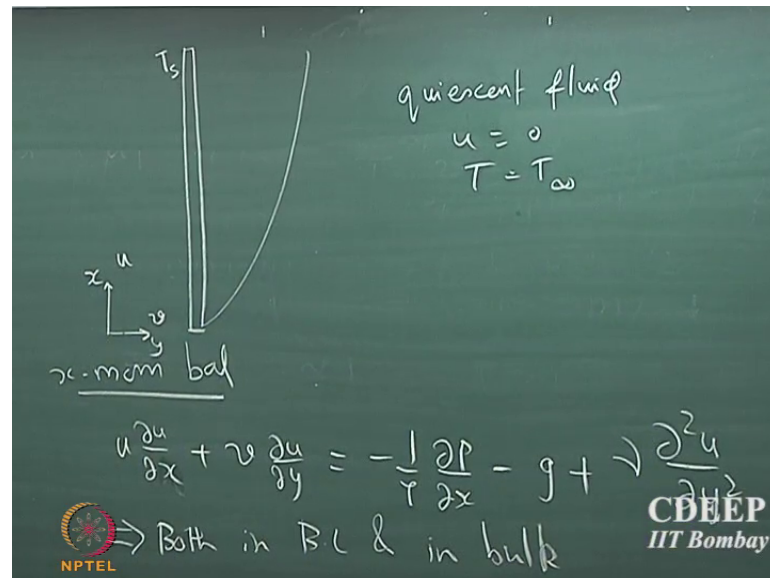 T_s
quiescent fluid
u = 0
T = T_∞
x u
v
y
x-mom bal
u ∂u/∂x + v ∂u/∂y = -1/ρ ∂P/∂x - g + ν ∂²u/∂y²
⇒ Both in B.L & in bulk
NPTEL
CDEEP
IIT Bombay